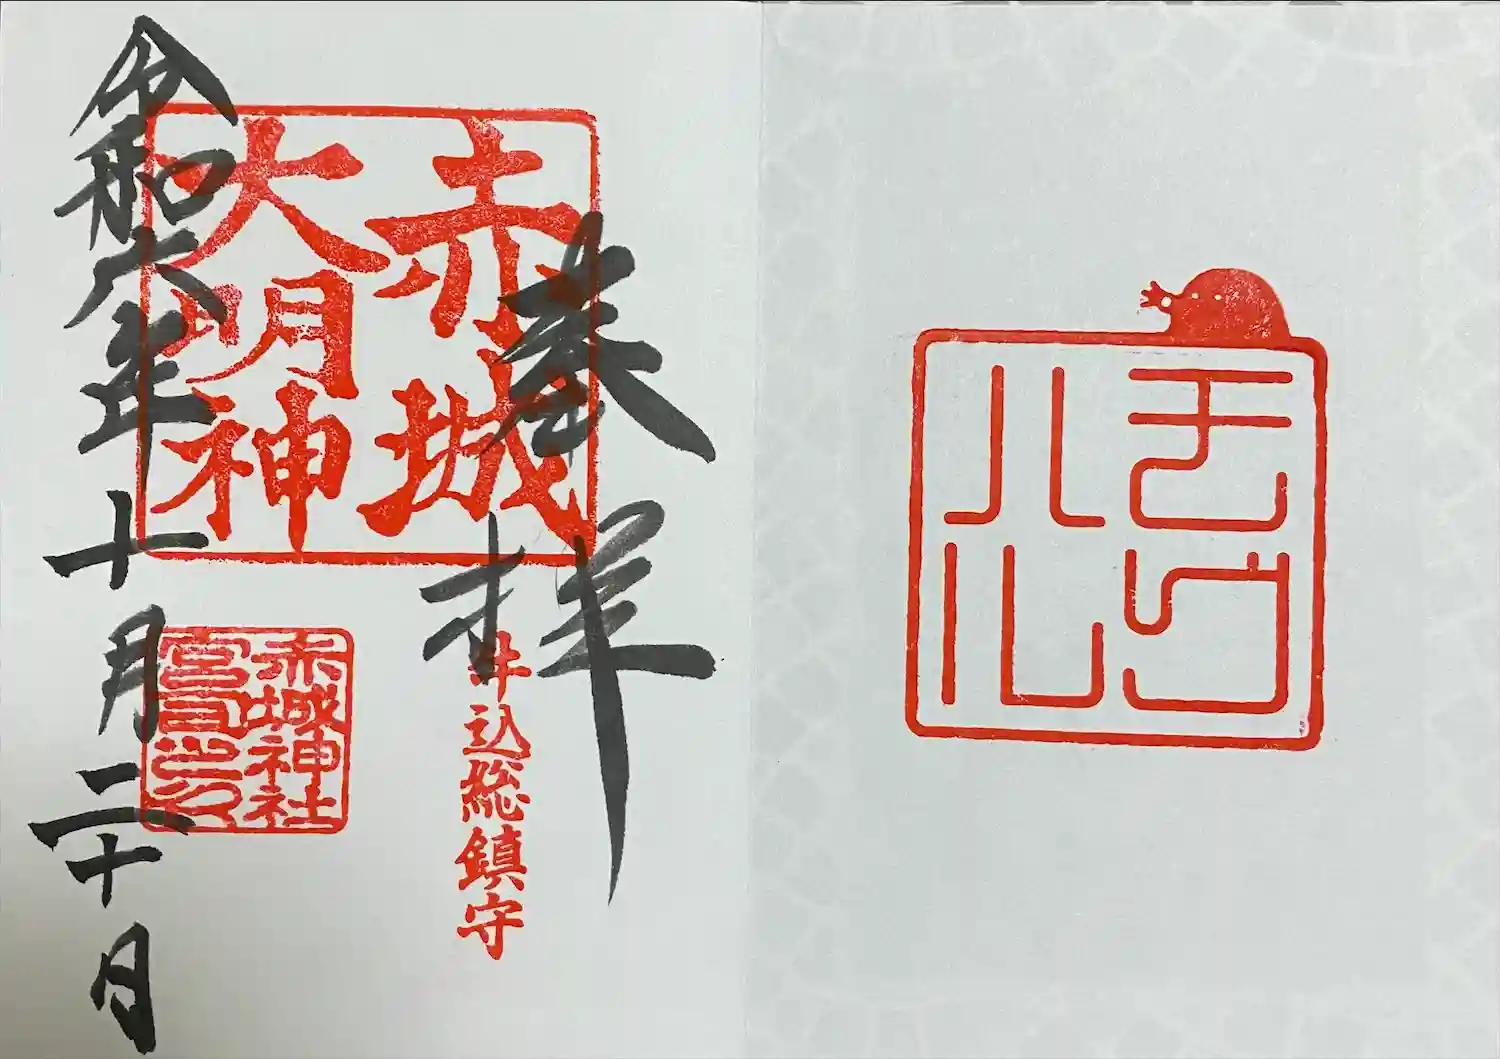 モグ
ハル
奉拝
牛込総鎮守
赤城
大明神
赤城神社
宮司之印
令和六年十月二十日